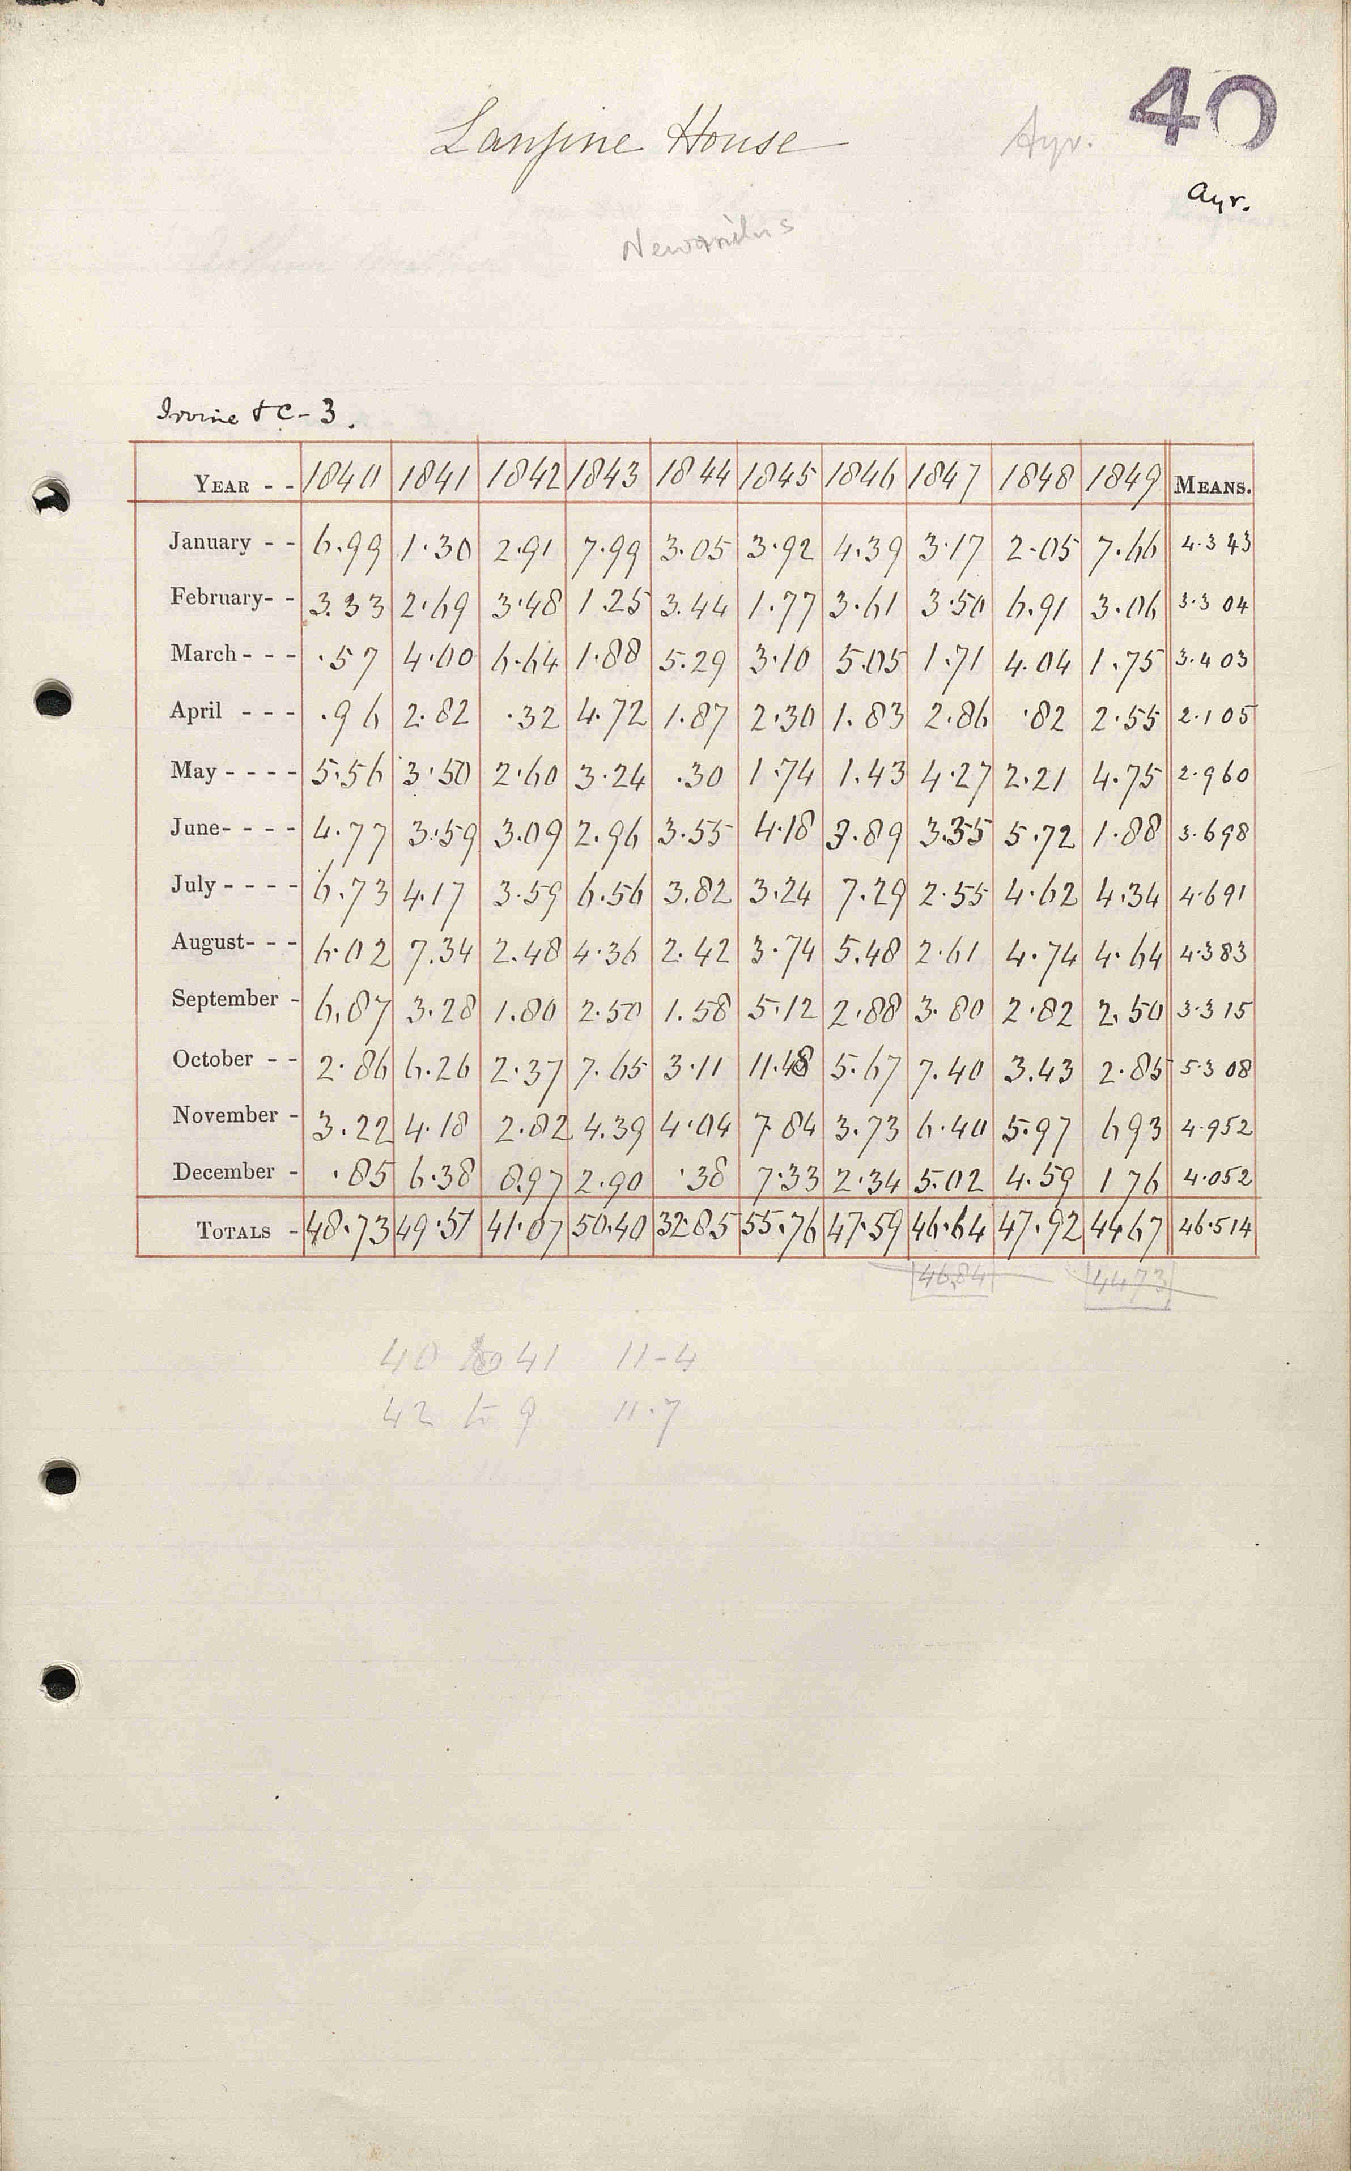 40
Lanfine House Ayr.
Ayr.
Newmilns
Irvine & C - 3.
YEAR - - 1840 1841 1842 1843 1844 1845 1846 1847 1848 1849 MEANS.
January - - 6.99 1.30 2.91 7.99 3.05 3.92 4.39 3.17 2.05 7.66 4.343
February- - 3.33 2.69 3.48 1.25 3.44 1.77 3.61 3.50 6.91 3.06 3.304
March - - - .57 4.00 6.64 1.88 5.29 3.10 5.05 1.71 4.04 1.75 3.403
April - - - .96 2.82 .32 4.72 1.87 2.30 1.83 2.86 .82 2.55 2.105
May - - - - 5.56 3.50 2.60 3.24 .30 1.74 1.43 4.27 2.21 4.75 2.960
June- - - - 4.77 3.59 3.09 2.96 3.55 4.18 3.89 3.35 5.72 1.88 3.698
July - - - - 6.73 4.17 3.59 6.56 3.82 3.24 7.29 2.55 4.62 4.34 4.691
August- - - 6.02 7.34 2.48 4.36 2.42 3.74 5.48 2.61 4.74 4.64 4.383
September - 6.87 3.28 1.80 2.50 1.58 5.12 2.88 3.80 2.82 2.50 3.315
October - - 2.86 6.26 2.37 7.65 3.11 11.48 5.67 7.40 3.43 2.85 5.308
November - 3.22 4.18 2.82 4.39 4.04 7.84 3.73 6.40 5.97 6 93 4.952
December - .85 6.38 8.97 2.90 .38 7.33 2.34 5.02 4.59 1 76 4.052
TOTALS - 48.73 49.51 41.07 50.40 32.85 55.76 47.59 46.64 47.92 4467 46.514
46.84 4473
40 to 41 11-4
42 to 9 11.7